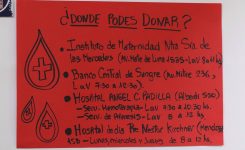 ¿DONDE PODES DONAR?
• Instituto de Maternidad Ntra Sra. de
las Mercedes (Av. Mate de Luna 1535-LaV 8a11hs)
• Banco Central de Sangre (Av. Mitre 236,
LaV 7:30 a 10:30).
• HOSPITAL ANGEL C. PADILLA (Alberdi 550)
- Serv. Hemoterapia - LaV 7:30 a 10:30 hs.
- Serv. de Aféresis - LaV 8 a 12 hs.
• Hospital de día Pte Néstor Kirchner (Mendoza
Lunes, miércoles y jueves de 8 a 12 hs.